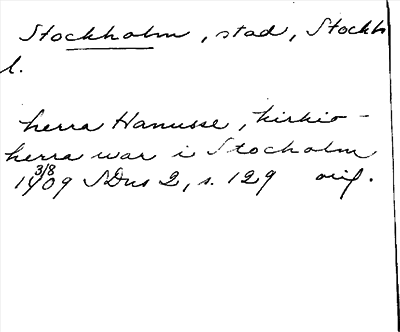 Stockholm, stad, Stockh
l.
herra Hanusse, kirkio-
herra war i Stocholm
3/8
1409 SDns 2, s. 129 orig.